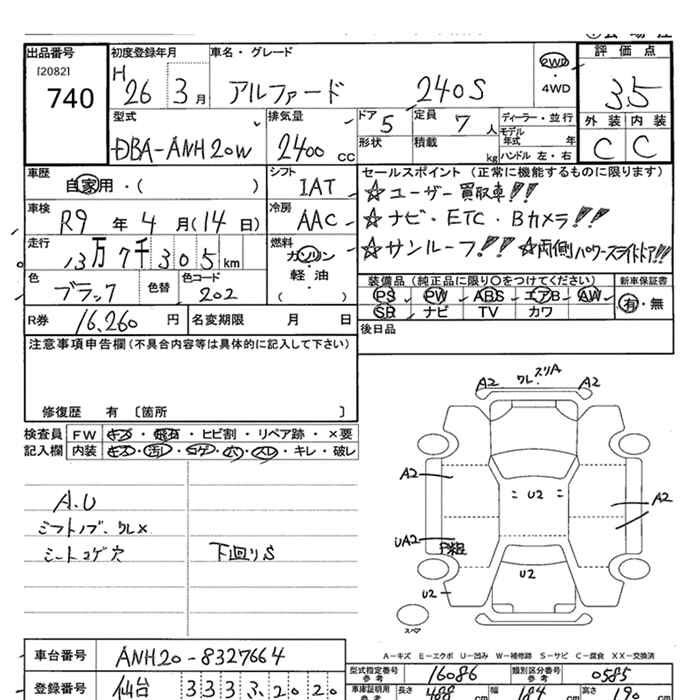 出品番号
[2082]
740
初度登録年月
H 26 3月
車名・グレード
アルファード 240S
2WD
・
4WD
評価点
3.5
外装 内装
C C
型式
DBA-ANH20W
排気量
2400 CC
ドア 5
形状
定員 7人
積載 kg
ディーラー・並行
モデル年式 年
ハンドル 左・右
車歴
自家用・( )
シフト
IAT
セールスポイント(正常に機能するものに限ります)
☆ユーザー買取車!!
☆ナビ・ETC・Bカメラ!!
☆サンルーフ!! ☆両側パワースライドドア!!!
車検
R9年4月(14日)
冷房
AAC
走行
13万7千305km
燃料
ガソリン
・
軽・油
( )
色
ブラック
色替
色コード
202
装備品(純正品に限り○をつけてください)
PS PW ABS エアB AW
SR ナビ TV カワ
新車保証書
有・無
R券 16,260円
名変期限 月 日
後日品
注意事項申告欄(不具合内容等は具体的に記入して下さい)
修復歴 有 〔箇所 〕
検査員記入欄
FW キズ・飛石・ヒビ割・リペア跡・×要
内装 キズ・汚レ・コゲ・穴・スレ・キレ・破レ
A.U
シフトノブ・クレ×
シートコゲ穴
下回りS
A2 ワレ、スリA A2
A2
U2
A2
UA2
P粗
U2
U2
スペア
A-キズ E-エクボ U-凹み W-補修跡 S-サビ C-腐食 XX-交換済
車台番号 ANH20-8327664
型式指定番号 16086
類別区分番号 0585
登録番号 仙台 333 ふ 2020
車庫証明用
長さ 488 cm
幅 184 cm
高さ 190 cm